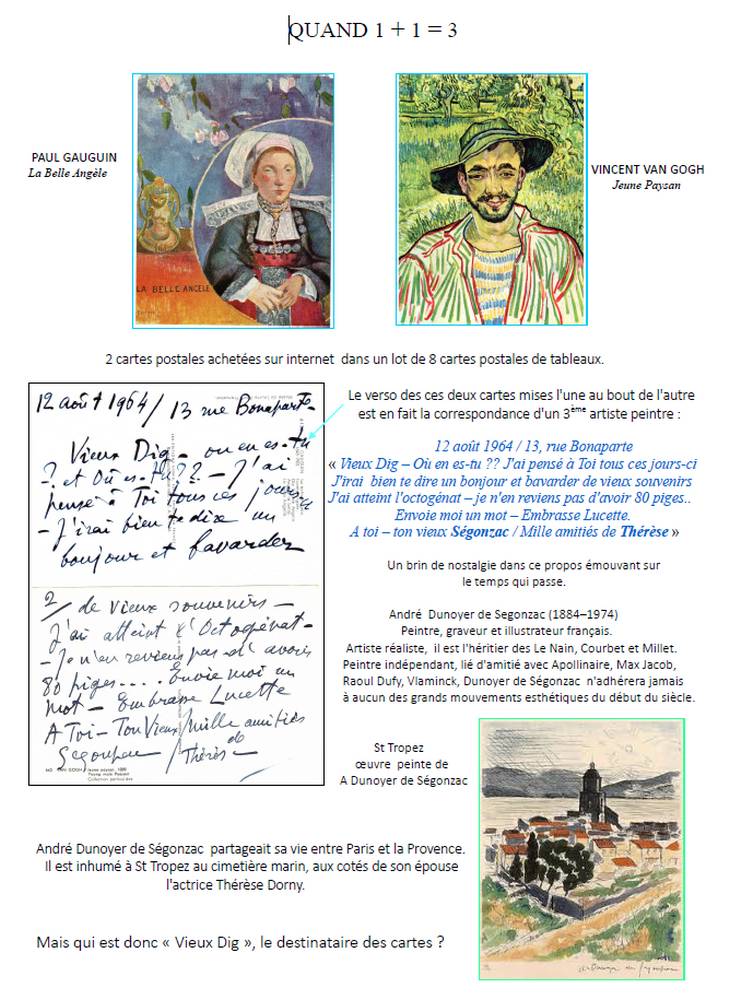 QUAND 1 + 1 = 3
PAUL GAUGUIN
La Belle Angèle
LA BELLE ANGELE
VINCENT VAN GOGH
Jeune Paysan
2 cartes postales achetées sur internet dans un lot de 8 cartes postales de tableaux.
Le verso des ces deux cartes mises l'une au bout de l'autre
est en fait la correspondance d'un 3ème artiste peintre :
12 août 1964 / 13 rue Bonaparte
Vieux Dig – où en es-tu
? et Où es-tu ?? – J'ai
pensé à Toi tous ces jours ci
– J'irai bien te dire un
bonjour et bavarder
2/ de vieux souvenirs –
J'ai atteint l'Octogénat –
– Je n'en reviens pas d'avoir
80 piges.... Envie moi un
mot – Embrasse Lucette
A Toi – Ton Vieux / Mille amitiés
Segonzac / Thérèse de
VAN GOGH, Jeune paysan, 1889
Collection particulière
12 août 1964 / 13, rue Bonaparte
« Vieux Dig – Où en es-tu ?? J'ai pensé à Toi tous ces jours-ci
J'irai bien te dire un bonjour et bavarder de vieux souvenirs
J'ai atteint l'octogénat – je n'en reviens pas d'avoir 80 piges..
Envoie moi un mot – Embrasse Lucette.
A toi – ton vieux Ségonzac / Mille amitiés de Thérèse »
Un brin de nostalgie dans ce propos émouvant sur
le temps qui passe.
André Dunoyer de Segonzac (1884–1974)
Peintre, graveur et illustrateur français.
Artiste réaliste, il est l'héritier des Le Nain, Courbet et Millet.
Peintre indépendant, lié d'amitié avec Apollinaire, Max Jacob,
Raoul Dufy, Vlaminck, Dunoyer de Ségonzac n'adhérera jamais
à aucun des grands mouvements esthétiques du début du siècle.
St Tropez
œuvre peinte de
A Dunoyer de Ségonzac
André Dunoyer de Ségonzac partageait sa vie entre Paris et la Provence.
Il est inhumé à St Tropez au cimetière marin, aux cotés de son épouse
l'actrice Thérèse Dorny.
Mais qui est donc « Vieux Dig », le destinataire des cartes ?